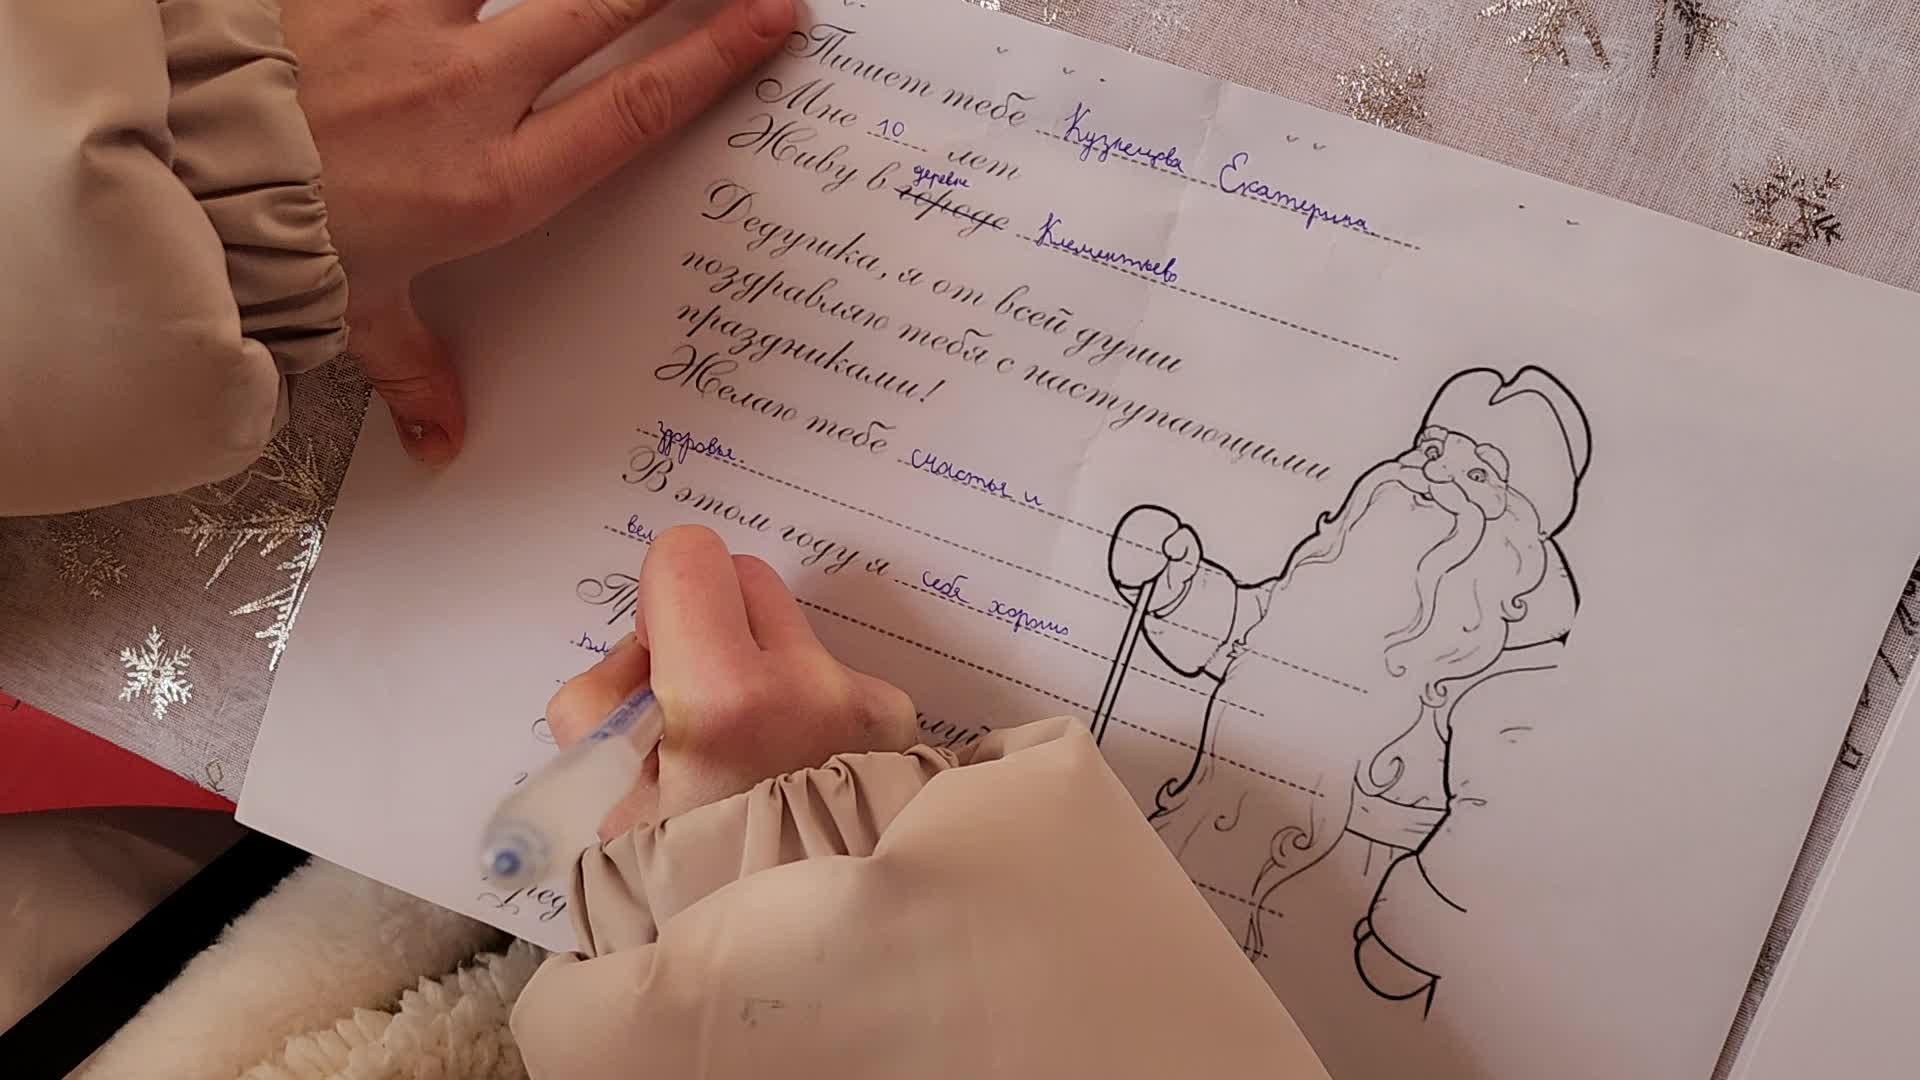 Пишет тебе Кузнецова Екатерина
Мне 10 лет
деревне
Живу в городе Клементьево
Дедушка, я от всей души
поздравляю тебя с наступающими
праздниками!
Желаю тебе счастья и
здоровья.
В этом году я себя хорошо
вел